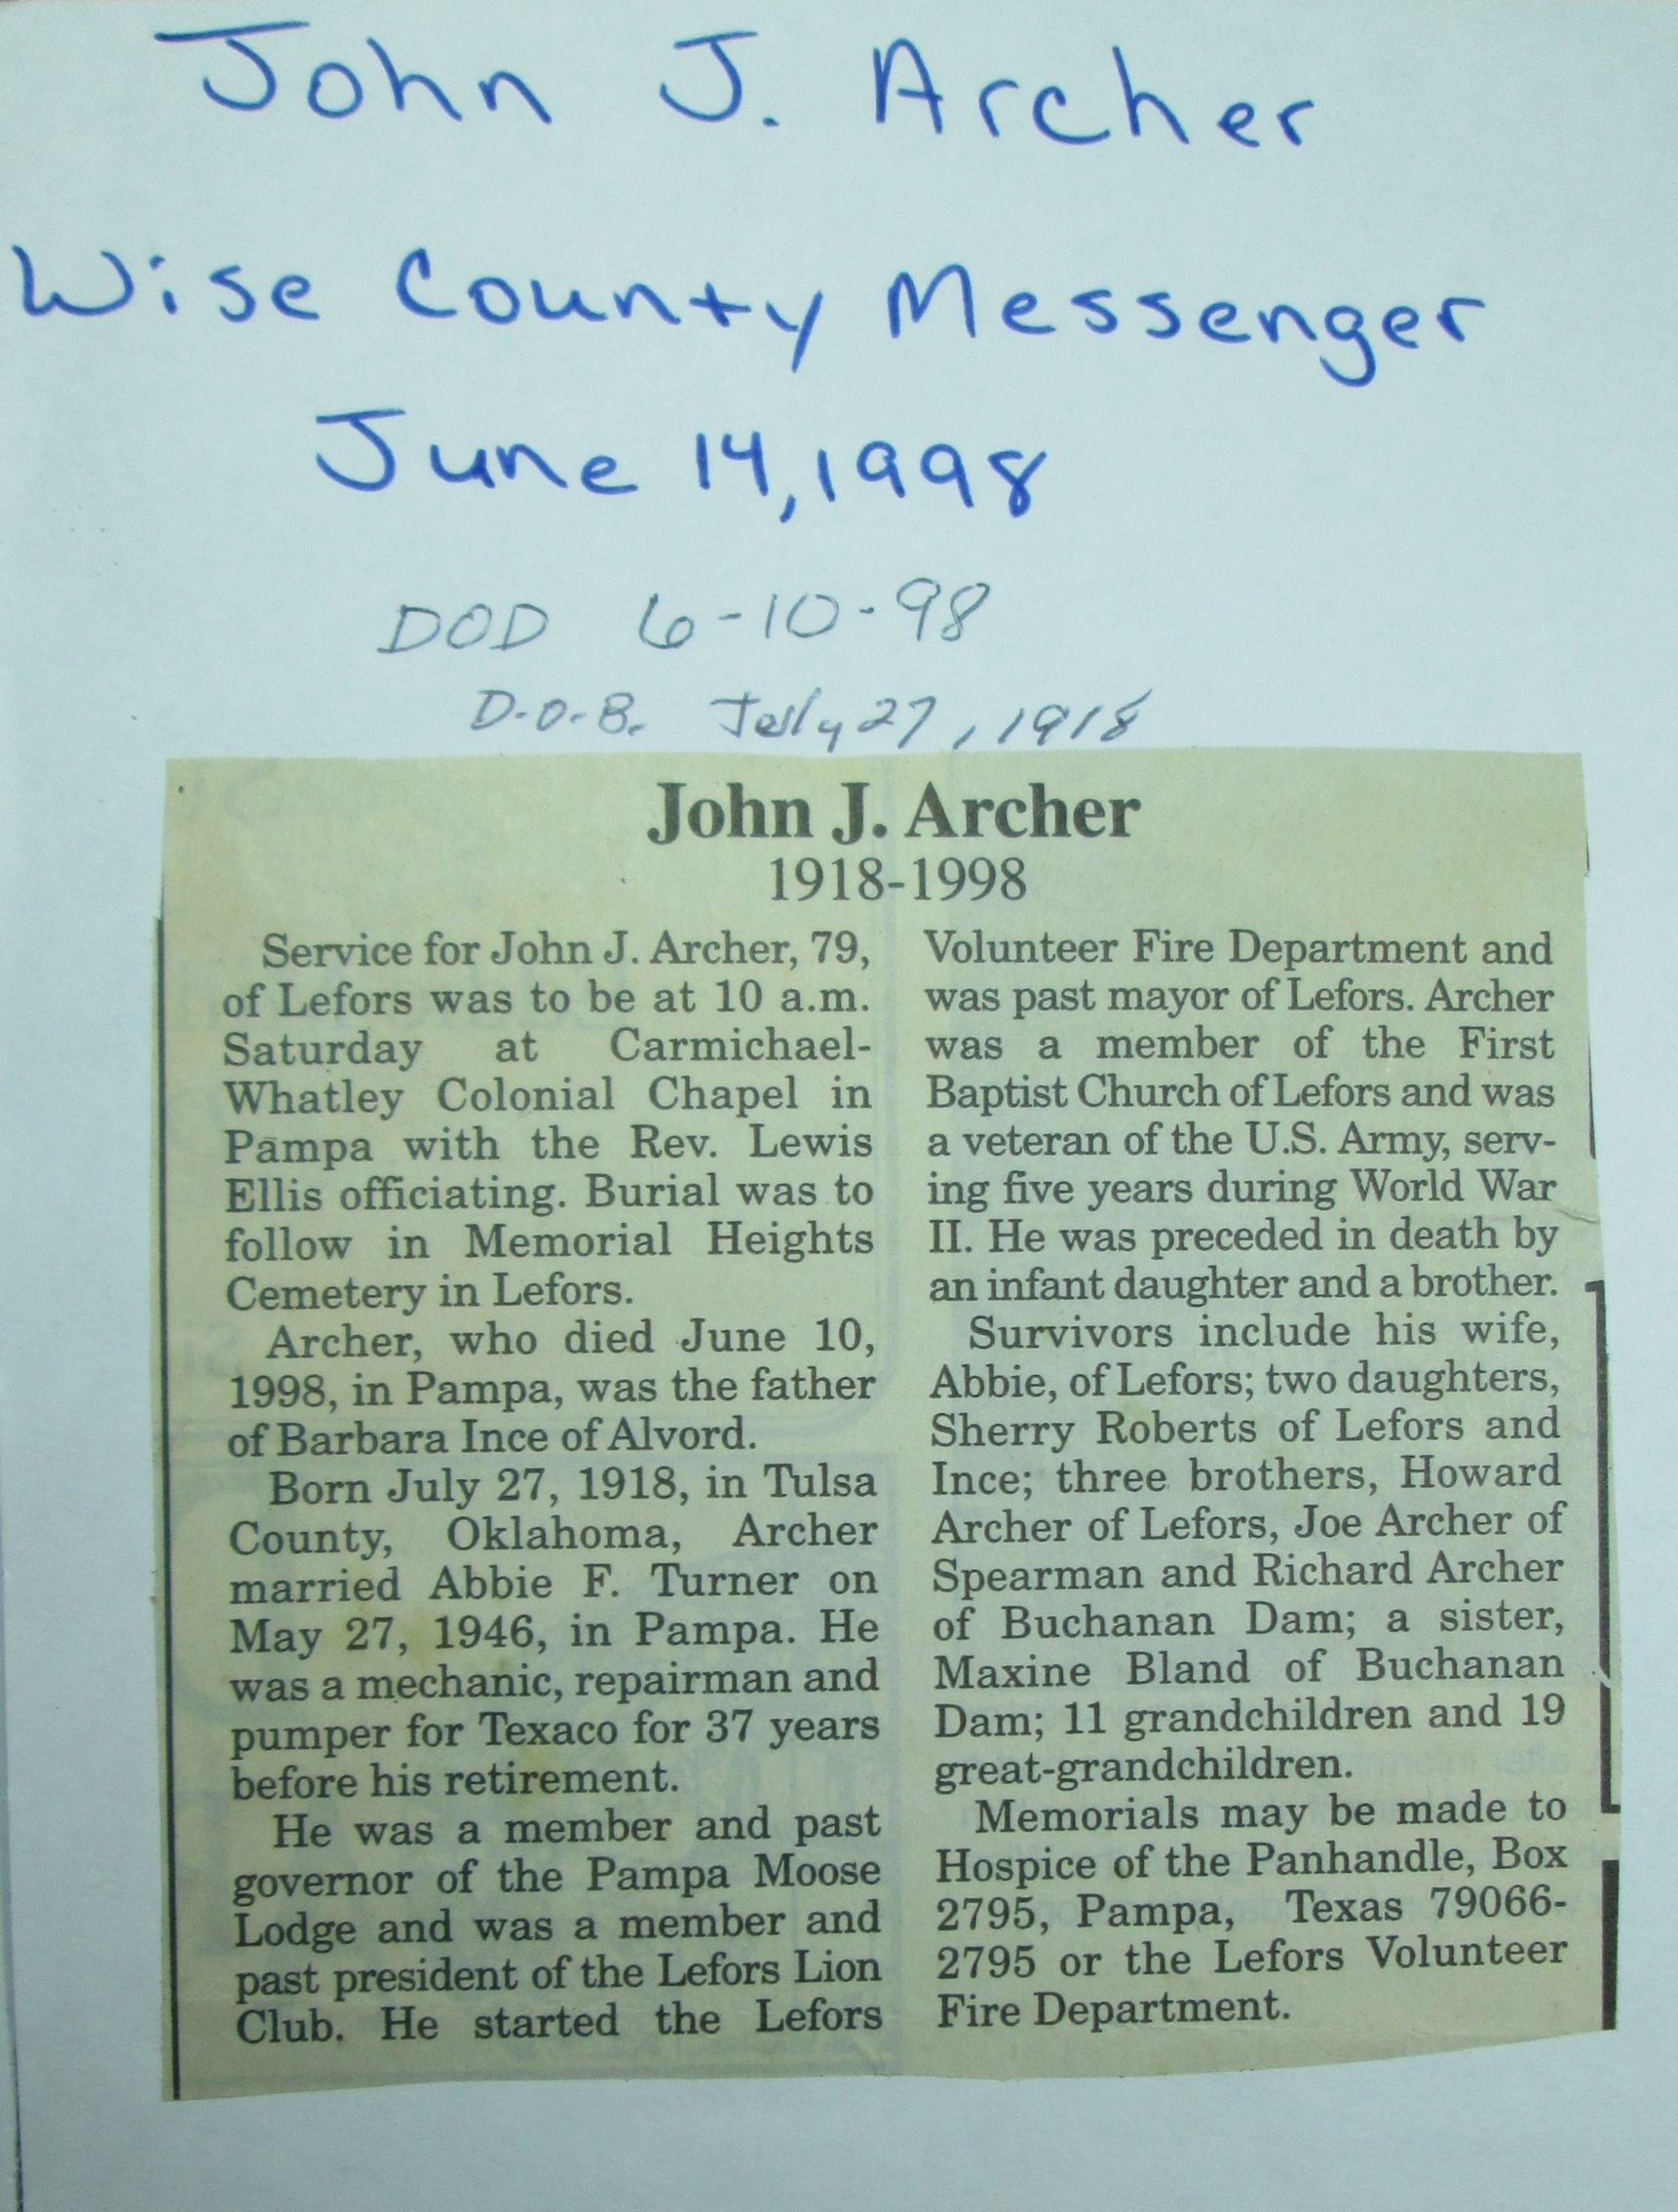 John J. Archer
Wise County Messenger
June 14, 1998
DOD 6-10-98
D.O.B. July 27, 1918
John J. Archer
1918-1998
Service for John J. Archer, 79,
of Lefors was to be at 10 a.m.
Saturday at Carmichael-
Whatley Colonial Chapel in
Pampa with the Rev. Lewis
Ellis officiating. Burial was to
follow in Memorial Heights
Cemetery in Lefors.
Archer, who died June 10,
1998, in Pampa, was the father
of Barbara Ince of Alvord.
Born July 27, 1918, in Tulsa
County, Oklahoma, Archer
married Abbie F. Turner on
May 27, 1946, in Pampa. He
was a mechanic, repairman and
pumper for Texaco for 37 years
before his retirement.
He was a member and past
governor of the Pampa Moose
Lodge and was a member and
past president of the Lefors Lion
Club. He started the Lefors
Volunteer Fire Department and
was past mayor of Lefors. Archer
was a member of the First
Baptist Church of Lefors and was
a veteran of the U.S. Army, serv-
ing five years during World War
II. He was preceded in death by
an infant daughter and a brother.
Survivors include his wife,
Abbie, of Lefors; two daughters,
Sherry Roberts of Lefors and
Ince; three brothers, Howard
Archer of Lefors, Joe Archer of
Spearman and Richard Archer
of Buchanan Dam; a sister,
Maxine Bland of Buchanan
Dam; 11 grandchildren and 19
great-grandchildren.
Memorials may be made to
Hospice of the Panhandle, Box
2795, Pampa, Texas 79066-
2795 or the Lefors Volunteer
Fire Department.